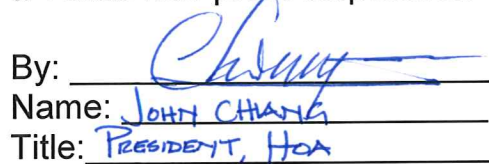 By:
Name: JOHN CHIANG
Title: PRESIDENT, HOA